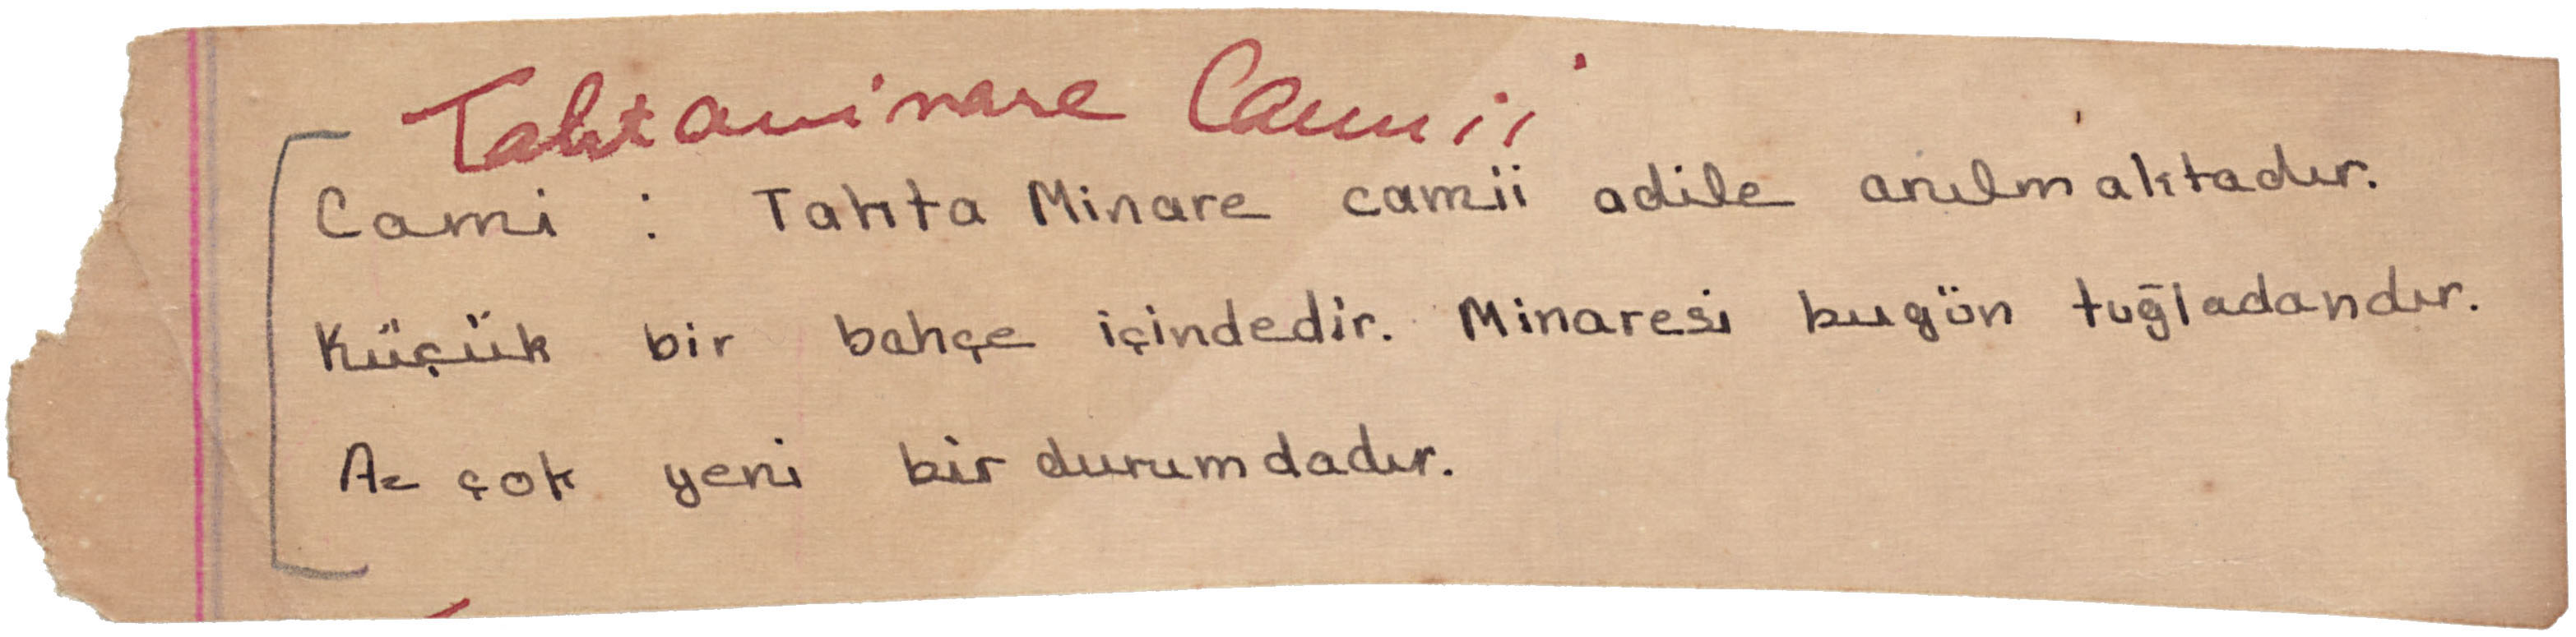 Tahtaminare Camii
Cami : Tahta Minare camii adile anılmaktadır.
Küçük bir bahçe içindedir. Minaresi bugün tuğladandır.
Az çok yeni bir durumdadır.